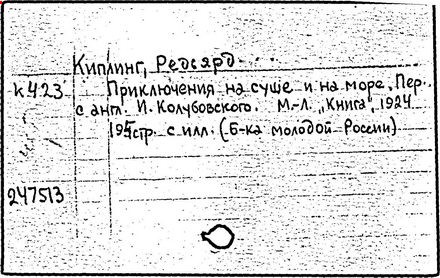 Киплинг, Редьярд...
К423 Приключения на суше и на море. Пер.
с англ. И. Колубовского. М.-Л. "Книга", 1924
195стр. с илл. (Б-ка молодой России)
247513